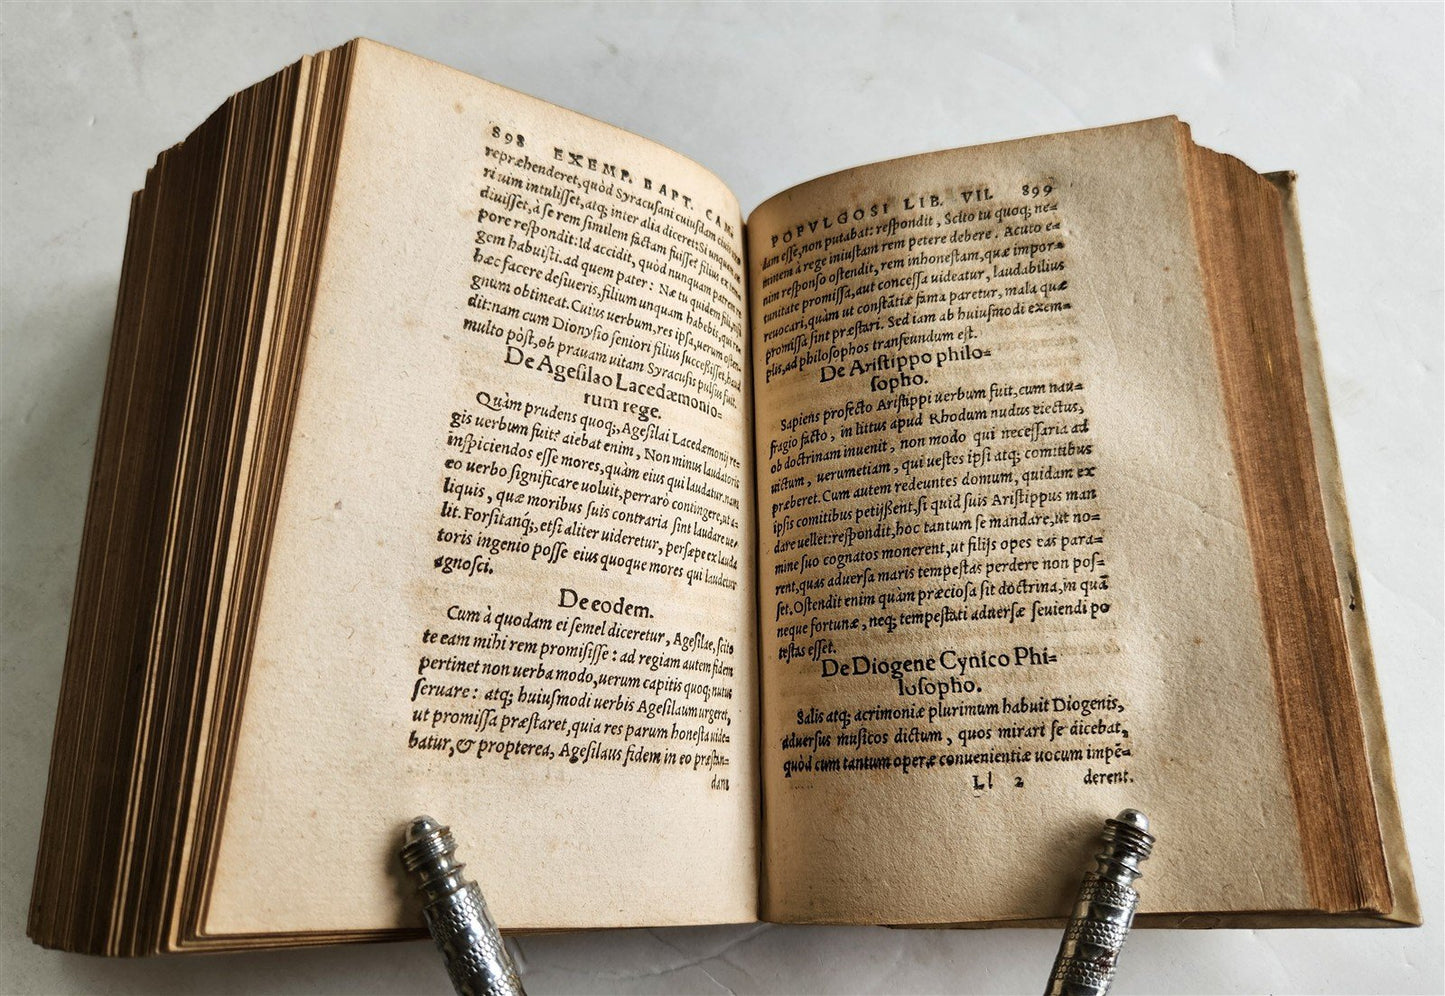 898 EXEMP. BAPT. CAM.
repræhenderet, quòd Syracusani cuiusdam
ri uim intulisset, atq; inter alia diceret: Si unquam
diuisset, à se rem similem factam fuisse? filius ex tem=
pore respondit: Id accidit, quòd nunquam patrem re=
gem habuisti. ad quem pater: Næ tu quidem
hæc facere desiueris, filium unquam habebis, qui
gnum obtineat. Cuius uerbum, res ipsa, uerum osten=
dit: nam cum Dionysio seniori filius successisset, haud
multo pòst, ob prauam uitam Syracusis pulsus fuit.
De Agesilao Lacedæmonio=
rum rege.
Quàm prudens quoq; Agesilai Lacedæmonij re=
gis uerbum fuit? aiebat enim, Non minus laudatoris
inspiciendos esse mores, quàm eius qui laudatur. nam
eo uerbo significare uoluit, perrarò contingere, ut a=
liquis, quæ moribus suis contraria sint laudare ue=
lit. Forsitanq;, etsi aliter uideretur, persæpe ex lauda
toris ingenio posse eius quoque mores qui laudetur
agnosci.
De eodem.
Cum à quodam ei semel diceretur, Agesilae, scito
te eam mihi rem promisisse: ad regiam autem fidem
pertinet non uerba modo, uerum capitis quoq; nutus
seruare: atq; huiusmodi uerbis Agesilaum urgeret,
ut promissa præstaret, quia res parum honesta uide=
batur, & propterea, Agesilaus fidem in eo præstan=
dam
POPVLGOSI LIB. VII. 899
dam esse, non putabat: respondit, Scito tu quoq; ne=
minem à rege iniustam rem petere debere. Acuto e=
nim responso ostendit, rem inhonestam, quæ impor=
tunitate promissa, aut concessa uideatur, laudabilius
reuocari, quàm ut constātiæ fama paretur, mala quæ
promissa sint præstari. Sed iam ab huiusmodi exem=
plis, ad philosophos transeundum est.
De Aristippo philo=
sopho.
Sapiens profecto Aristippi uerbum fuit, cum nau=
fragio facto, in littus apud Rhodum nudus eiectus,
ob doctrinam inuenit, non modo qui necessaria ad
uictum, uerumetiam, qui uestes ipsi atq; comitibus
præberet. Cum autem redeuntes domum, quidam ex
ipsis comitibus petijssent, si quid suis Aristippus man
dare uellet: respondit, hoc tantum se mandare, ut no=
mine suo cognatos monerent, ut filijs opes eas para=
rent, quas aduersa maris tempestas perdere non pos=
set. Ostendit enim quàm præciosa sit doctrina, in quā
neque fortunæ, neq; tempestati aduersæ seuiendi po
testas esset.
De Diogene Cynico Phi=
losopho.
Salis atq; acrimoniæ plurimum habuit Diogenis,
aduersus musicos dictum, quos mirari se dicebat,
quòd cum tantum operæ conuenientiæ uocum impē=
Ll 2 derent.